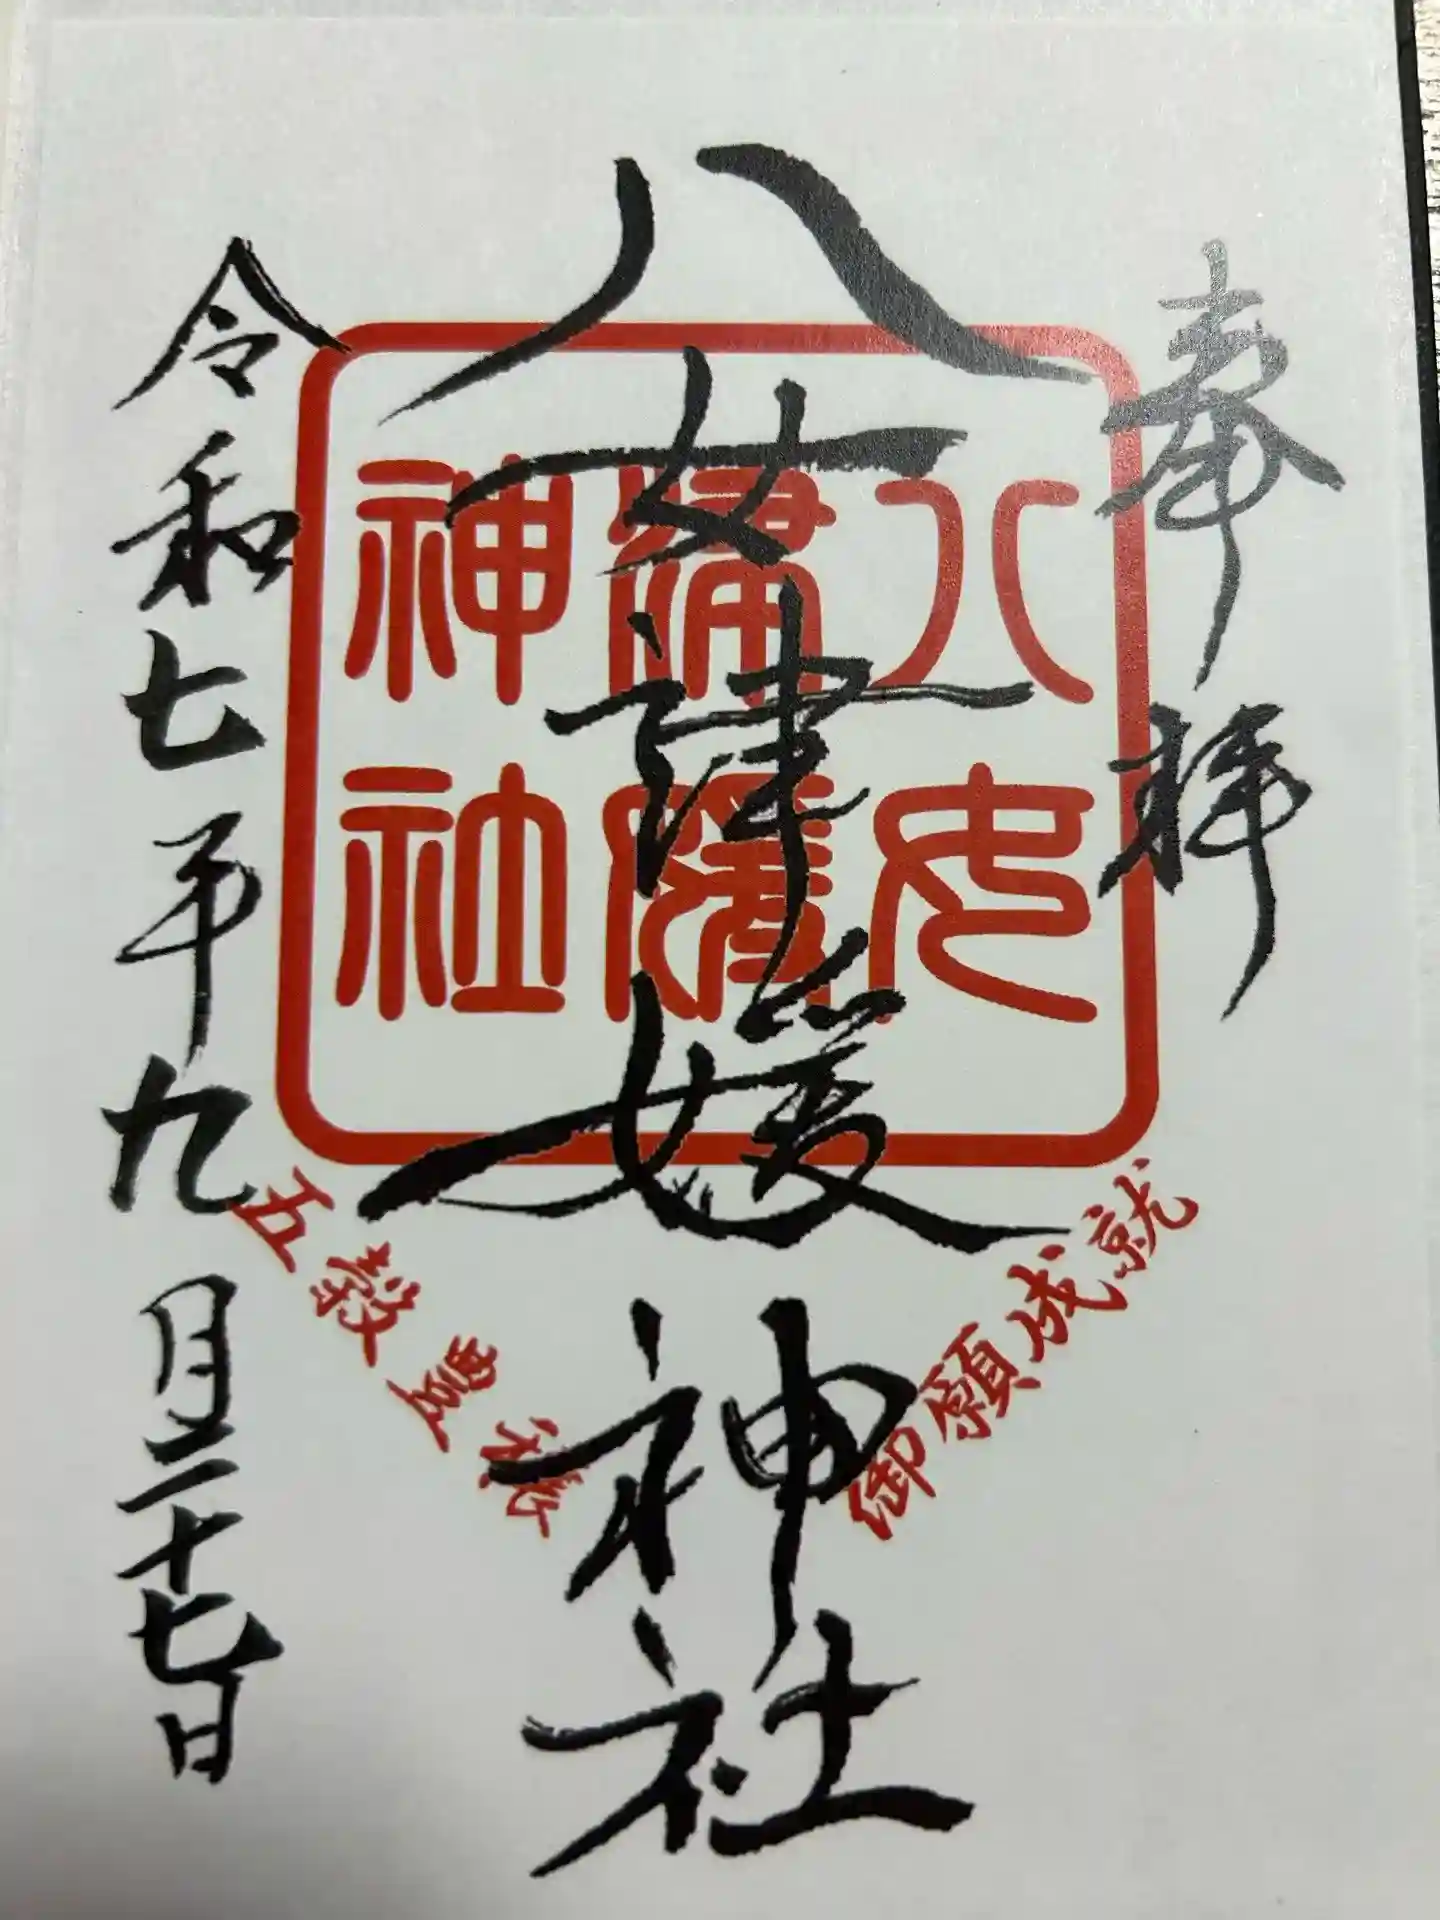 奉拝
八女津媛神社
令和七年九月二十七日
八女
津媛
神社
御願成就
五穀豊穣